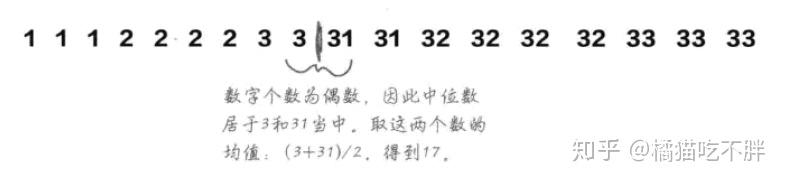 1 1 1 2 2 2 2 3 3 31 31 32 32 32 32 33 33 33
数字个数为偶数，因此中位数
居于3和31当中。取这两个数的
均值：(3+31)/2，得到17。
知乎 @橘猫吃不胖